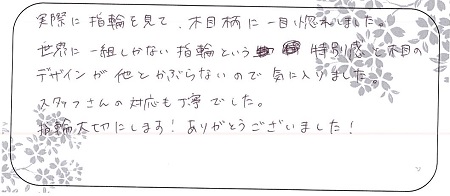 実際に指輪を見て、木目柄に一目惚れしました。
世界に一組しかない指輪という 特別感と木目の
デザインが他とかぶらないので気に入りました。
スタッフさんの対応も丁寧でした。
指輪大切にします！ありがとうございました！